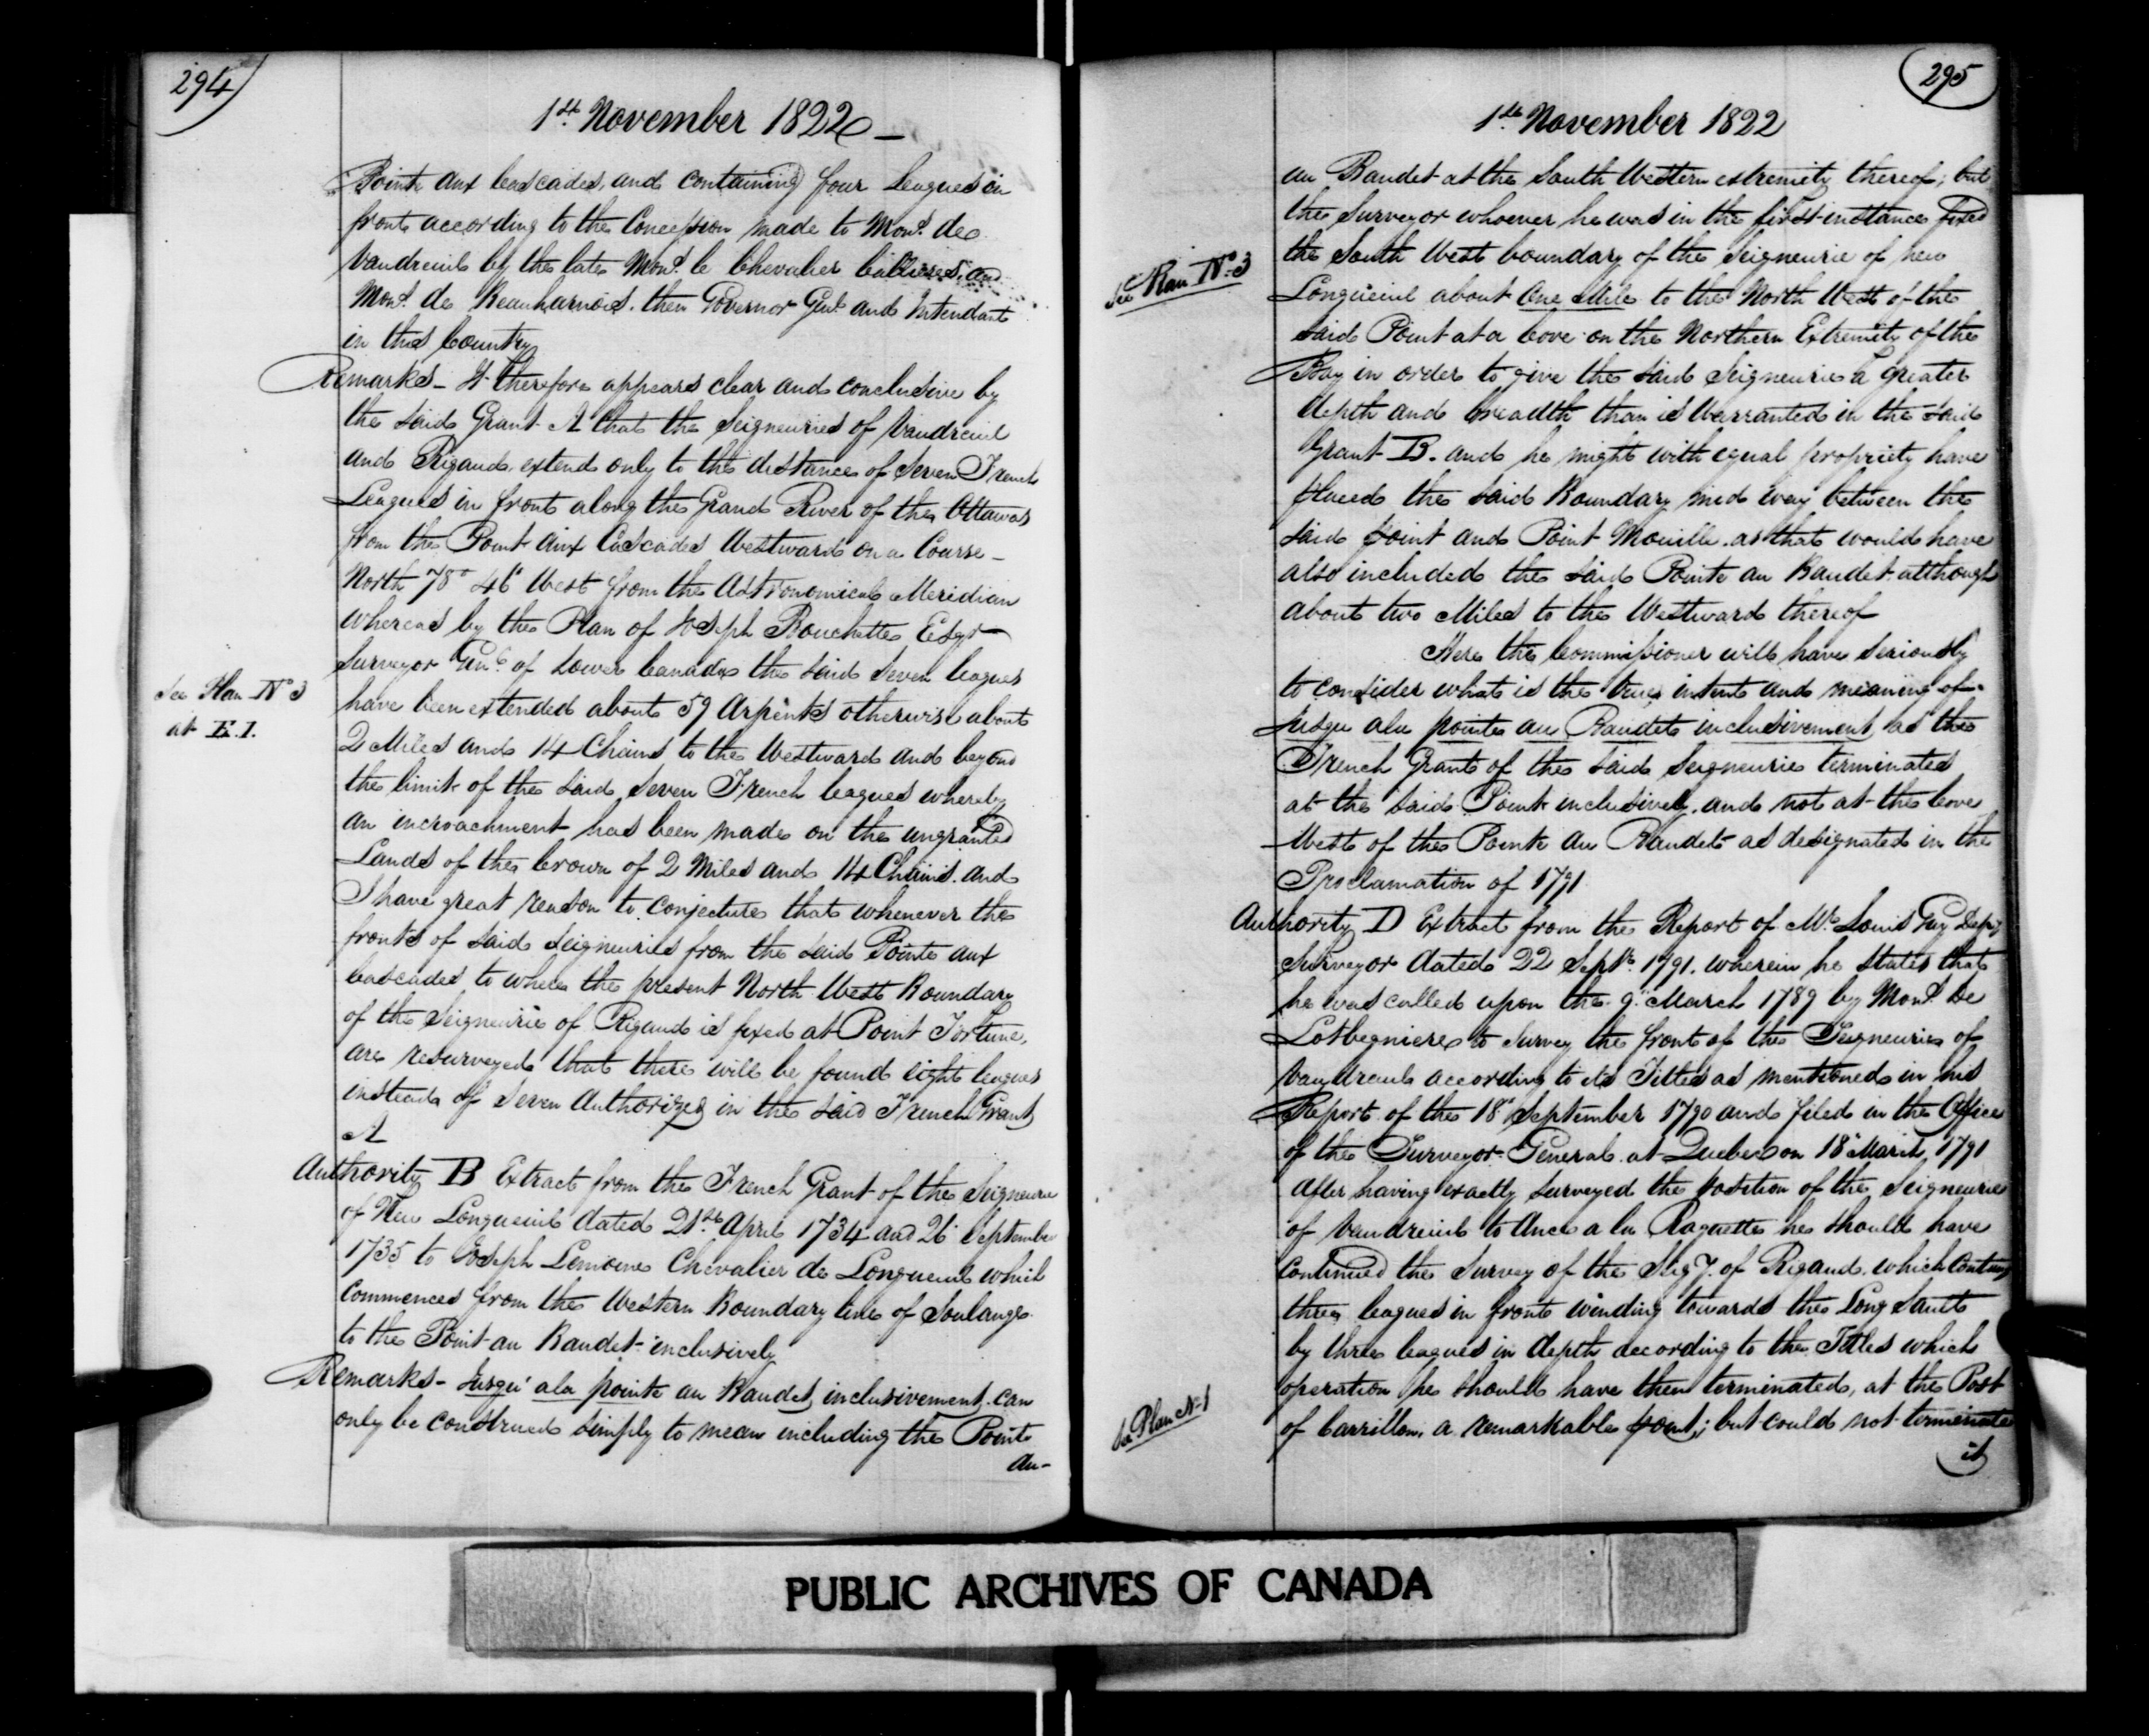 294
1st November 1822 —
Pointe aux Cascades, and containing four Leagues in
front according to the Concession made to Monsr. de
Vaudreuil by the late Monsr. le Chevalier Callieres, and
Monsr. de Beauharnois, then Governor Genl. and Intendant
in this Country
Remarks - It therefore appears clear and conclusive by
the said Grant A that the Seigneuries of Vaudreuil
and Rigaud, extend only to the distance of Seven French
Leagues in front along the Grand River of the Ottawas
from the Point aux Cascades Westward on a Course -
North 78° 46' West from the Astronomical Meridian
Whereas by the Plan of Joseph Bouchette Esqr
Surveyor Genl. of Lower Canada the said Seven leagues
See Plan No 3
at E.1.
have been extended about 59 Arpents otherwise about
2 Miles and 14 Chains to the Westward and beyond
the limit of the said Seven French leagues whereby
an incroachment has been made on the ungranted
Lands of the Crown of 2 Miles and 14 Chains. and
I have great reason to conjecture that whenever the
fronts of said Seigneuries from the said Pointe aux
Cascades to where the present North West Boundary
of the Seigneurie of Rigaud is fixed at Point Fortune,
are resurveyed that there will be found eight leagues
instead of Seven Authorized in the said French Grant
A
Authority B Extract from the French Grant of the Seigneurie
of New Longueuil dated 21st April 1734 and 26 September
1735 to Joseph Lemoine Chevalier de Longueuil which
Commences from the Western Boundary line of Soulange
to the Point au Baudet inclusively
Remarks - Jusqu' ala pointe au Baudet, inclusivement, can
only be construed simply to mean including the Pointe
au-
295
1st November 1822
au Baudet at the South Western extremity thereof; but
the Surveyor whoever he was in the first instance fixed
See Plan No 3
the South West boundary of the Seigneurie of new
Longueuil about One Mile to the North West of the
said Point at a Cove on the Northern Extremity of the
Bay in order to give the said Seigneurie a greater
depth and breadth than is Warranted in the said
Grant B. and he might with equal propriety have
placed the said Boundary mid way between the
said point and Point Mouille as that would have
also included the said Pointe au Baudet although
about two Miles to the Westward thereof
Here the Commissioner will have seriously
to consider what is the true intent and meaning of
Jusqu ala pointe au Baudets inclusivement, as the
French Grant of the said Seigneurie terminated
at the said Point inclusively, and not at the Cove
West of the Pointe au Baudet as designated in the
Proclamation of 1791
Authority D Extract from the Report of Mr. Louis Guy Depy
Surveyor dated 22 Septr. 1791. wherein he states that
he was called upon the 9" March 1789 by Monsr. De
Lotbegniere to survey the front of the Seigneurie of
Vaudreuil according to its Titles as mentioned in his
Report of the 18" September 1790 and filed in the Office
of the Surveyor General at Quebec on 18" March, 1791
After having exactly surveyed the position of the Seigneurie
of Vaudreuil to Ance a la Raquette he should have
Continued the Survey of the Seigy. of Rigaud, which Contains
three leagues in front winding towards the Long Sault
by three leagues in depth according to the Titles which
operation he should have then terminated, at the Post
See Plan No 1
of Carrillon, a remarkable point; but could not terminate
it
PUBLIC ARCHIVES OF CANADA